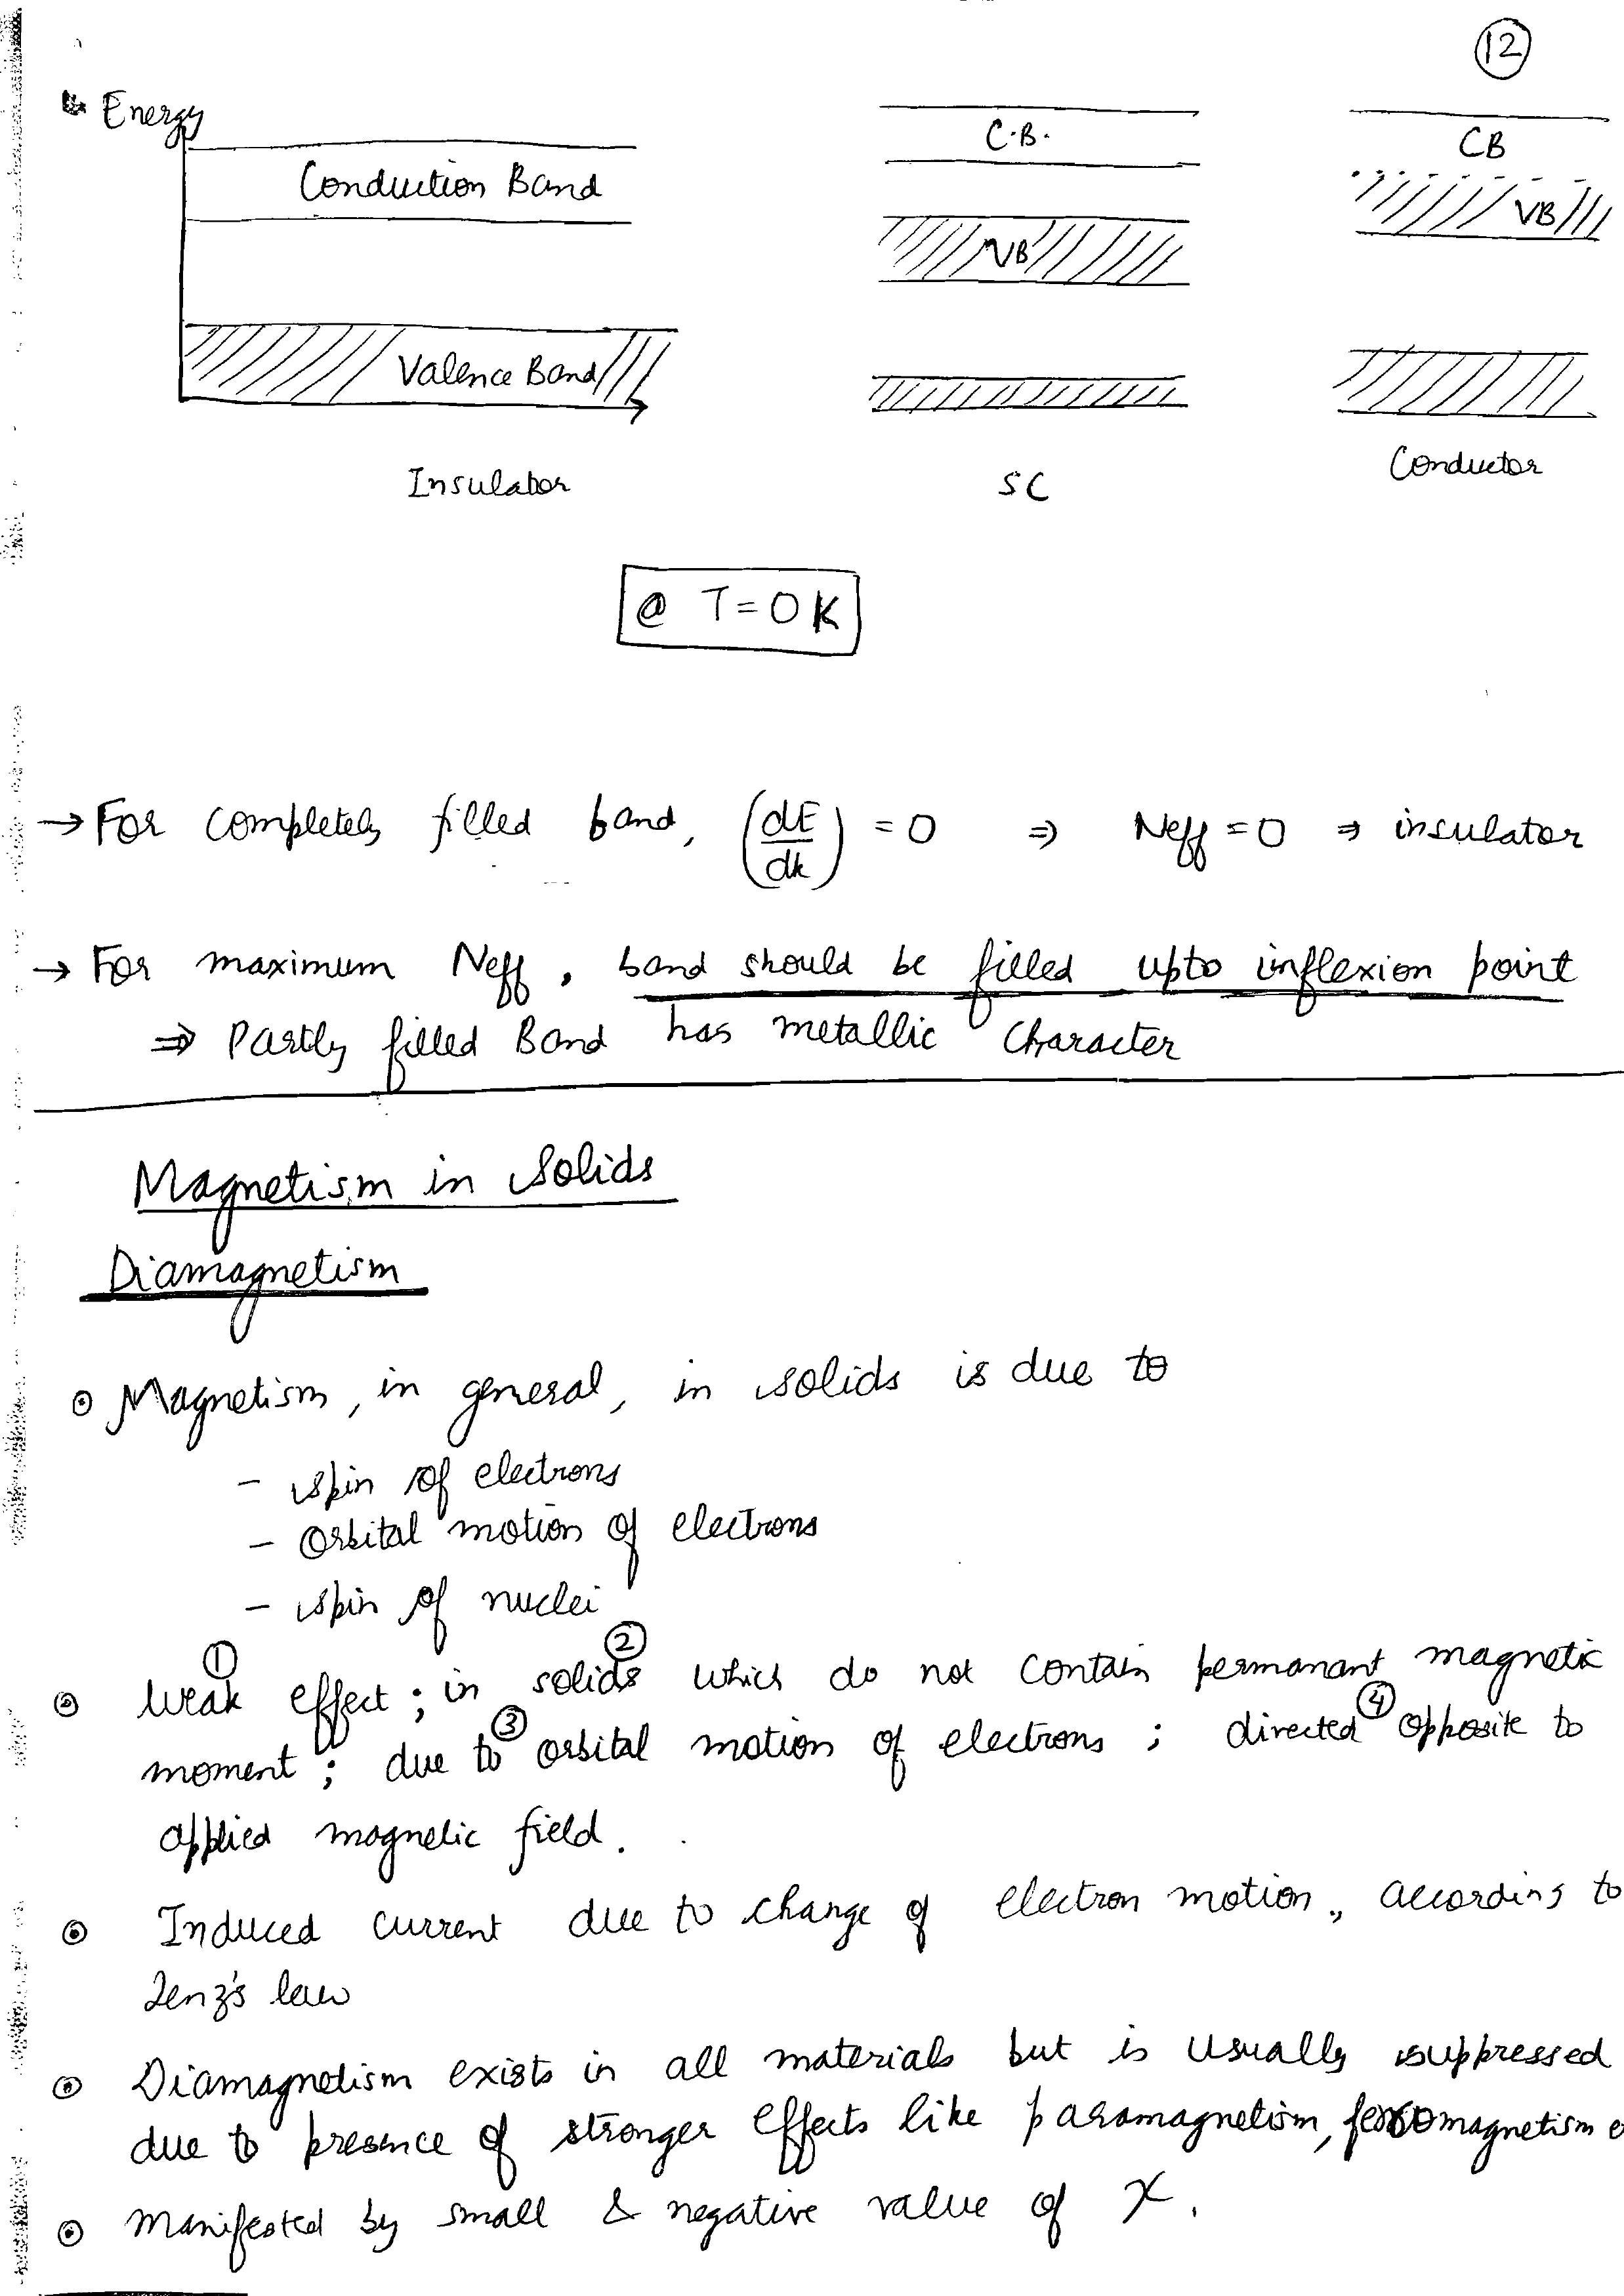 12
Energy
Conduction Band
Valence Band
Insulator
C.B.
VB
SC
CB
VB
Conductor
@ T=0K
→ For completely filled band, (dE/dk) = 0 ⇒ Neff = 0 ⇒ insulator
→ For maximum Neff, band should be filled upto inflexion point
⇒ Partly filled Band has metallic character
Magnetism in Solids
Diamagnetism
⊙ Magnetism, in general, in solids is due to
- spin of electrons
- Orbital motion of electrons
- spin of nuclei
① ②
⊙ Weak effect; in solids which do not contain permanant magnetic
③ ④
moment; due to orbital motion of electrons; directed opposite to
applied magnetic field.
⊙ Induced current due to change of electron motion, according to
Lenz's law
⊙ Diamagnetism exists in all materials but is usually suppressed
due to presence of stronger effects like paramagnetism, ferromagnetism
⊙ Manifested by small & negative value of χ.